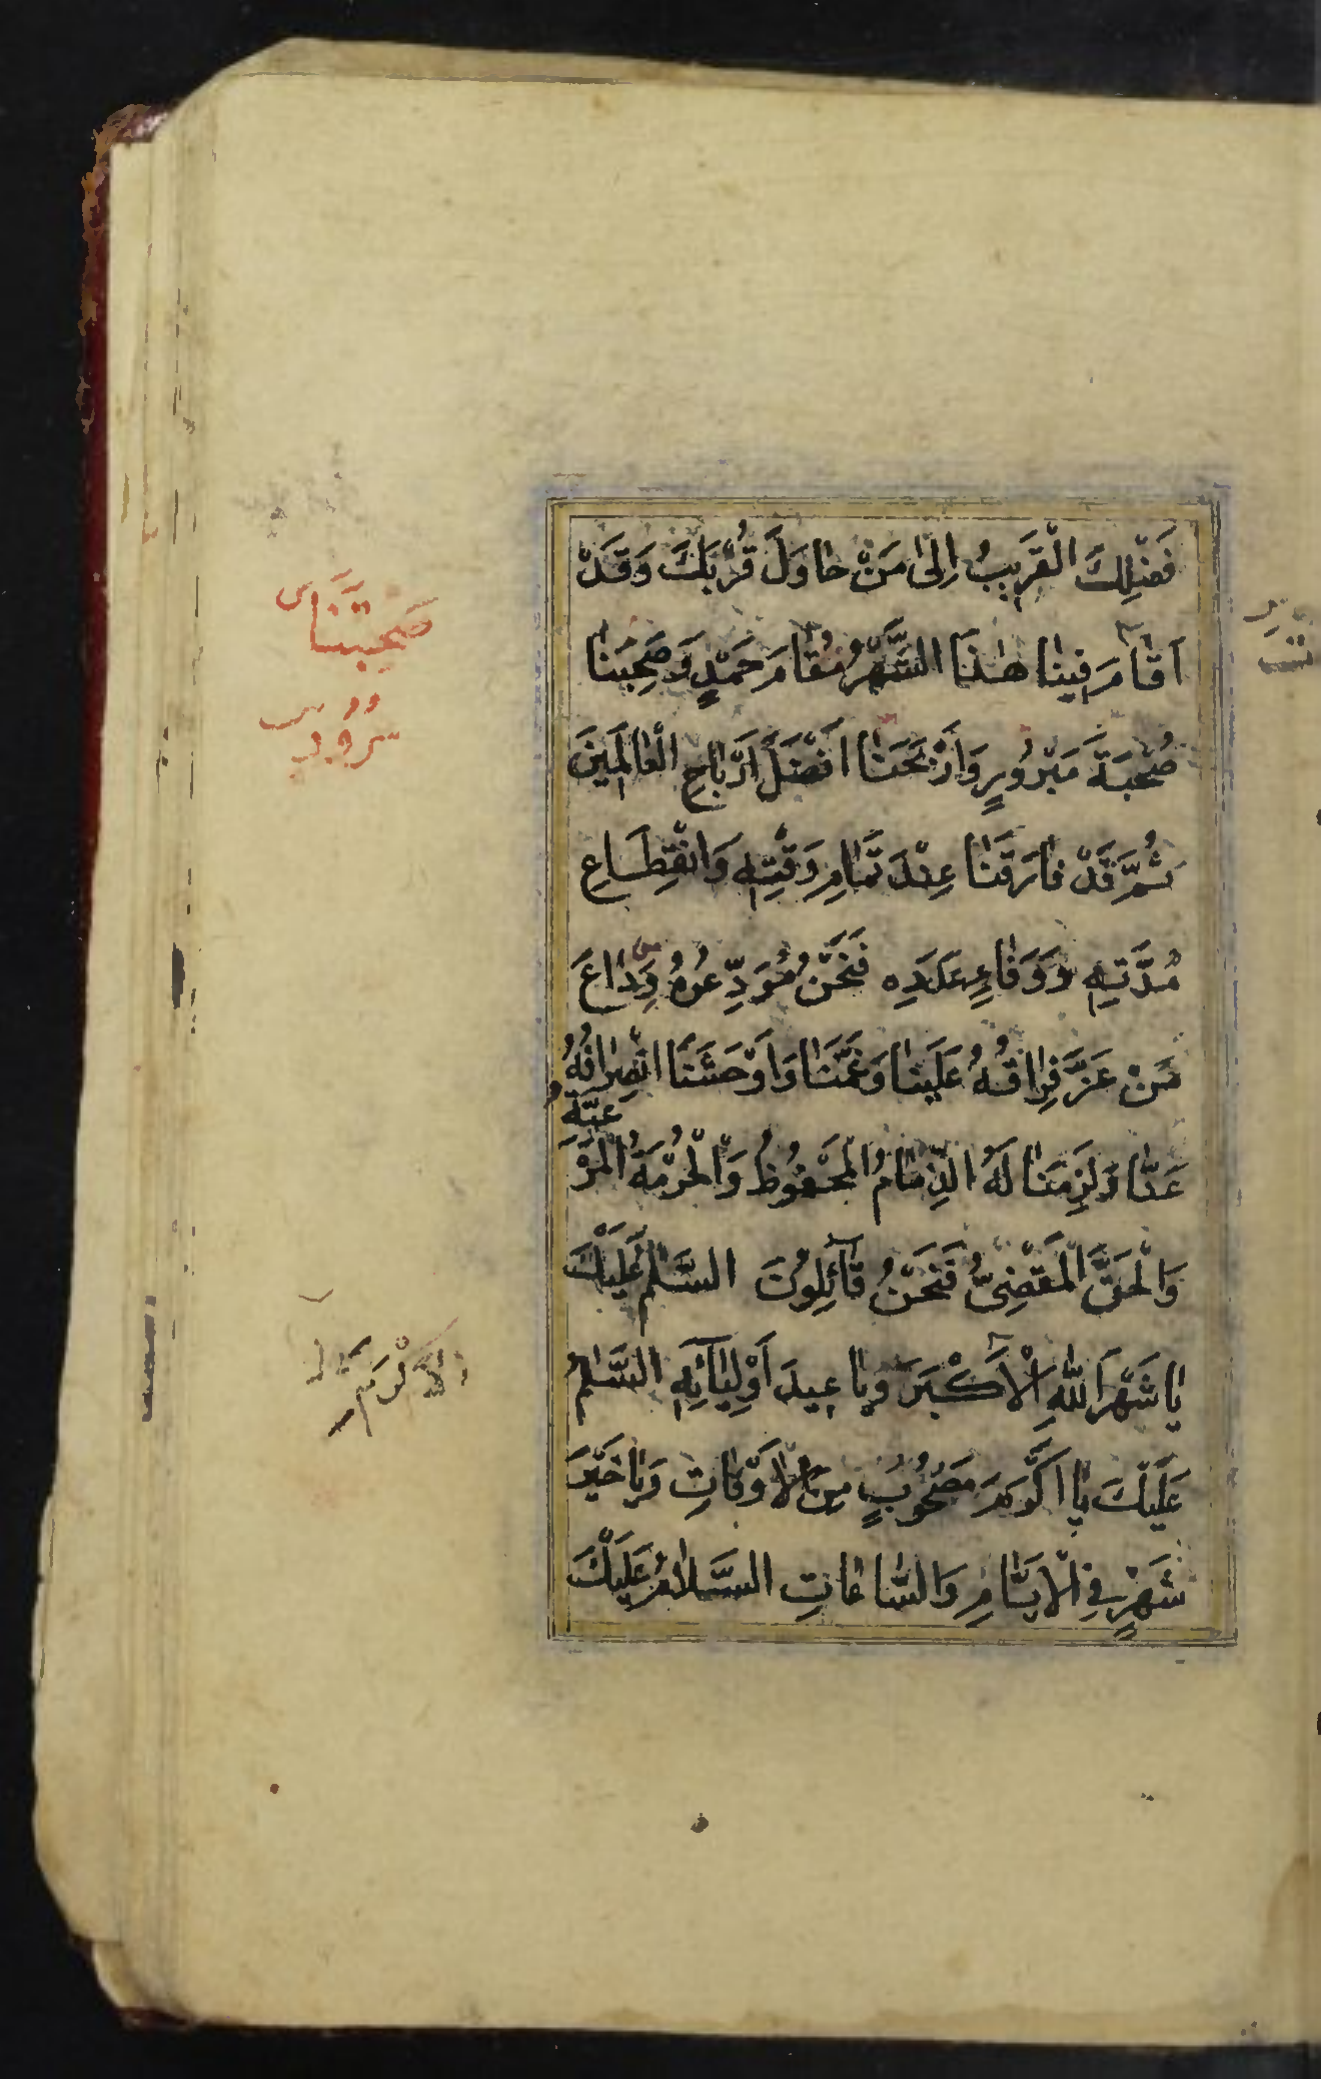 فَضْلِكَ الْقَرِيبُ اِلىٰ مَنْ حٰاوَلَ قُرْبَكَ وَقَدْ
اَقٰامَ فِينٰا هٰذَا الشَّهْرُ مُقٰامَ حَمْدٍ وَصَحِبَنٰا
صُحْبَةَ مَبْرُورٍ وَاَرْبَحَنٰا اَفْضَلَ اَرْبٰاحِ الْعٰالَمِينَ
ثُمَّ قَدْ فٰارَقَنٰا عِنْدَ تَمٰامِ وَقْتِهِ وَانْقِطٰاعِ
مُدَّتِهِ وَوَفٰاءِ عَدَدِهِ فَنَحْنُ مُوَدِّعُوهُ وِدٰاعَ
مَنْ عَزَّ فِرٰاقُهُ عَلَيْنٰا وَغَمَّنٰا وَاَوْحَشَنَا انْصِرٰافُهُ
عَنّٰا وَلَزِمَنٰا لَهُ الذِّمٰامُ الْمَحْفُوظُ وَالْحُرْمَةُ الْمَرْعِيَّةُ
وَالْحَقُّ الْمَقْضِىُّ فَنَحْنُ قٰآئِلُونَ السَّلٰمُ عَلَيْكَ
يٰا شَهْرَ اللّٰهِ الْاَكْبَرَ وَيٰا عِيدَ اَوْلِيٰآئِهِ السَّلٰمُ
عَلَيْكَ يٰا اَكْرَمَ مَصْحُوبٍ مِنَ الْاَوْقٰاتِ وَيٰا خَيْرَ
شَهْرٍ فِى الْاَيّٰامِ وَالسّٰاعٰاتِ السَّلاٰمُ عَلَيْكَ
صُحْبَتَنَا
سُرُور
الاكرم